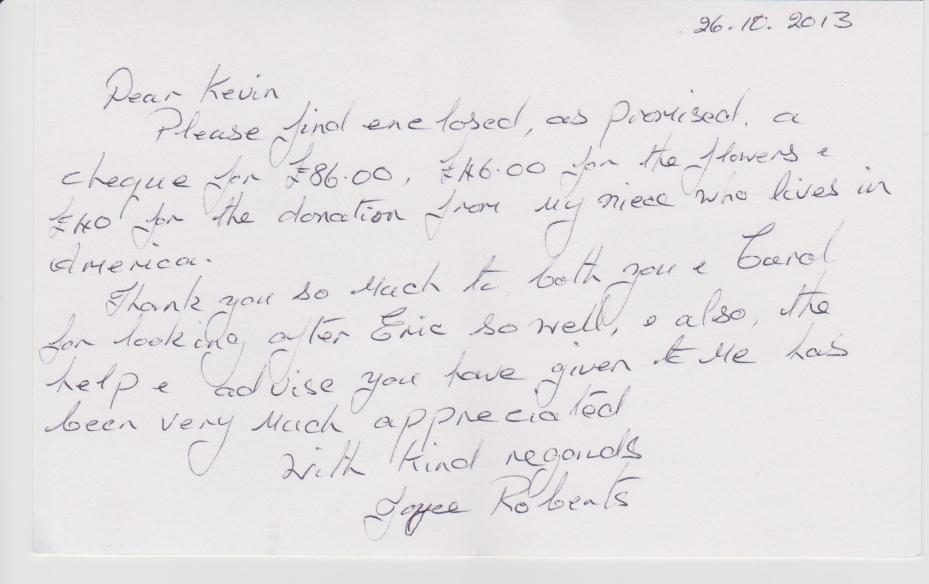 26.10.2013
Dear Kevin
Please find enclosed, as promised, a
cheque for £86.00, £46.00 for the flowers &
£40 for the donation from my niece who lives in
America.
Thank you so much to both you & Carol
for looking after Eric so well, & also, the
help & advise you have given to me has
been very much appreciated
With kind regards
Joyce Roberts